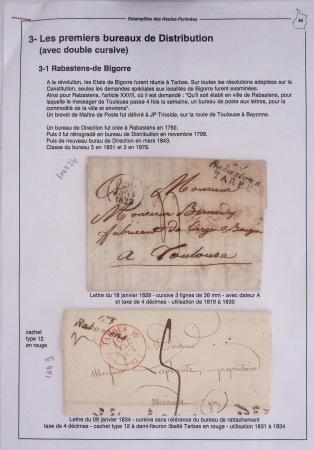 Estampilles des Hautes-Pyrénées
3- Les premiers bureaux de Distribution
(avec double cursive)
3-1 Rabastens-de Bigorre
A la révolution, les Etats de Bigorre furent réunis à Tarbes. Sur toutes les résolutions adoptées sur la
Constitution, seules les demandes spéciales aux localités de Bigorre furent examinées.
Ainsi pour Rabastens, l'article XXVII, où il est demandé : "Qu'il soit établi en ville de Rabastens, pour
laquelle le messager de Toulouse passe 4 fois la semaine, un bureau de poste aux lettres, pour la
commodité de la ville et environs".
Un brevet de Maître de Poste fut délivré à JP Trioside, sur la route de Toulouse à Bayonne.
Un bureau de Direction fut crée à Rabastens en 1792.
Puis il fut rétrogradé en bureau de Distribution en novembre 1798.
Puis de nouveau bureau de Direction en mars 1843.
Classe du bureau 5 en 1851 et 3 en 1876.
1829
Rabastens
TARB
Monsieur
Monsieur
fabricant de
a Toulouse
Lettre du 18 janvier 1829 - cursive 3 lignes de 36 mm - avec dateur A
et taxe de 4 décimes - utilisation de 1819 à 1830
cachet
type 12
en rouge
Rabastens
TARBES
Monsieur
propriétaire
Lettre du 09 janvier 1834 - cursive sans référence du bureau de rattachement
taxe de 4 décimes - cachet type 12 à demi-fleuron libellé Tarbes en rouge - utilisation 1831 à 1834